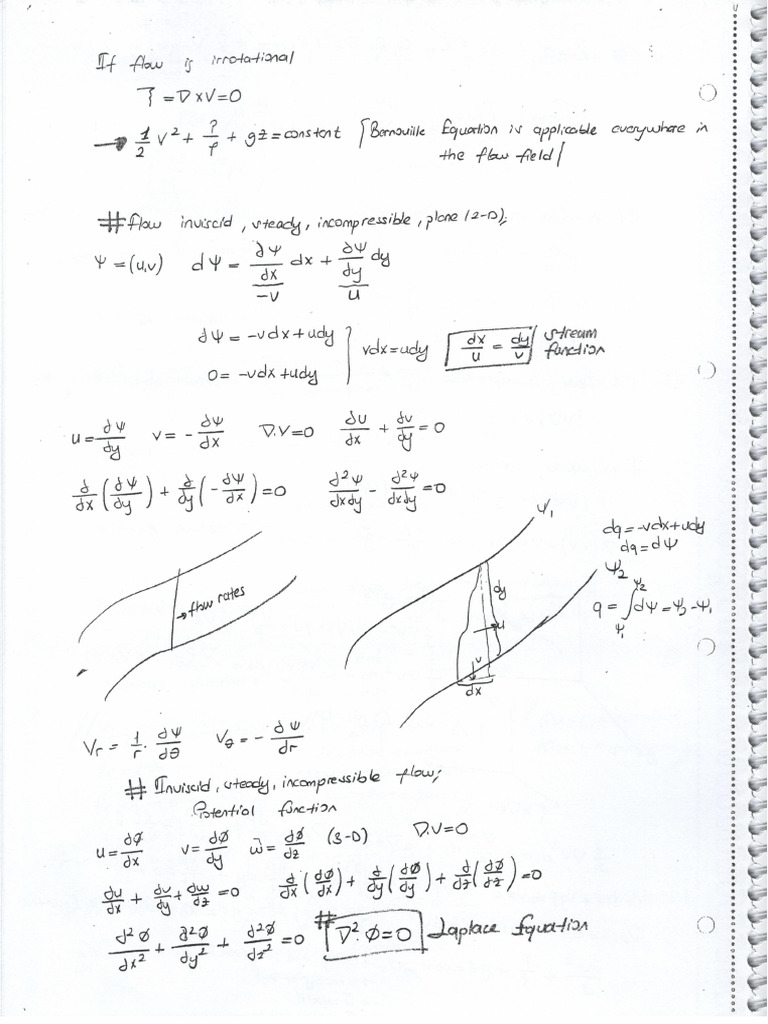 If flow is irrotational
ζ = ∇×V = 0
→ 1/2 V² + P/ρ + gz = constant [Bernouille Equation is applicable everywhere in
the flow field]
# flow inviscid, steady, incompressible, plane (2-D);
Ψ = (u,v) dΨ = ∂Ψ/∂x dx + ∂Ψ/∂y dy
-v u
dΨ = -vdx + udy
0 = -vdx + udy } vdx = udy dx/u = dy/v stream function
u = ∂Ψ/∂y v = -∂Ψ/∂x ∇.V=0 ∂u/∂x + ∂v/∂y = 0
∂/∂x (∂Ψ/∂y) + ∂/∂y (-∂Ψ/∂x) = 0 ∂²Ψ/∂x∂y - ∂²Ψ/∂x∂y = 0
→ flow rates
Ψ₁
dy
u
v
dx
Ψ₂
dq = -vdx + udy
dq = dΨ
q = ∫_Ψ₁^Ψ₂ dΨ = Ψ₂ - Ψ₁
Vr = 1/r . ∂Ψ/∂θ Vθ = -∂Ψ/∂r
# Inviscid, steady, incompressible flow;
Potential function
u = ∂Ø/∂x v = ∂Ø/∂y w = ∂Ø/∂z (3-D) ∇.V=0
∂u/∂x + ∂v/∂y + ∂w/∂z = 0 ∂/∂x (∂Ø/∂x) + ∂/∂y (∂Ø/∂y) + ∂/∂z (∂Ø/∂z) = 0
∂²Ø/∂x² + ∂²Ø/∂y² + ∂²Ø/∂z² = 0 # ∇².Ø=0 Laplace Equation